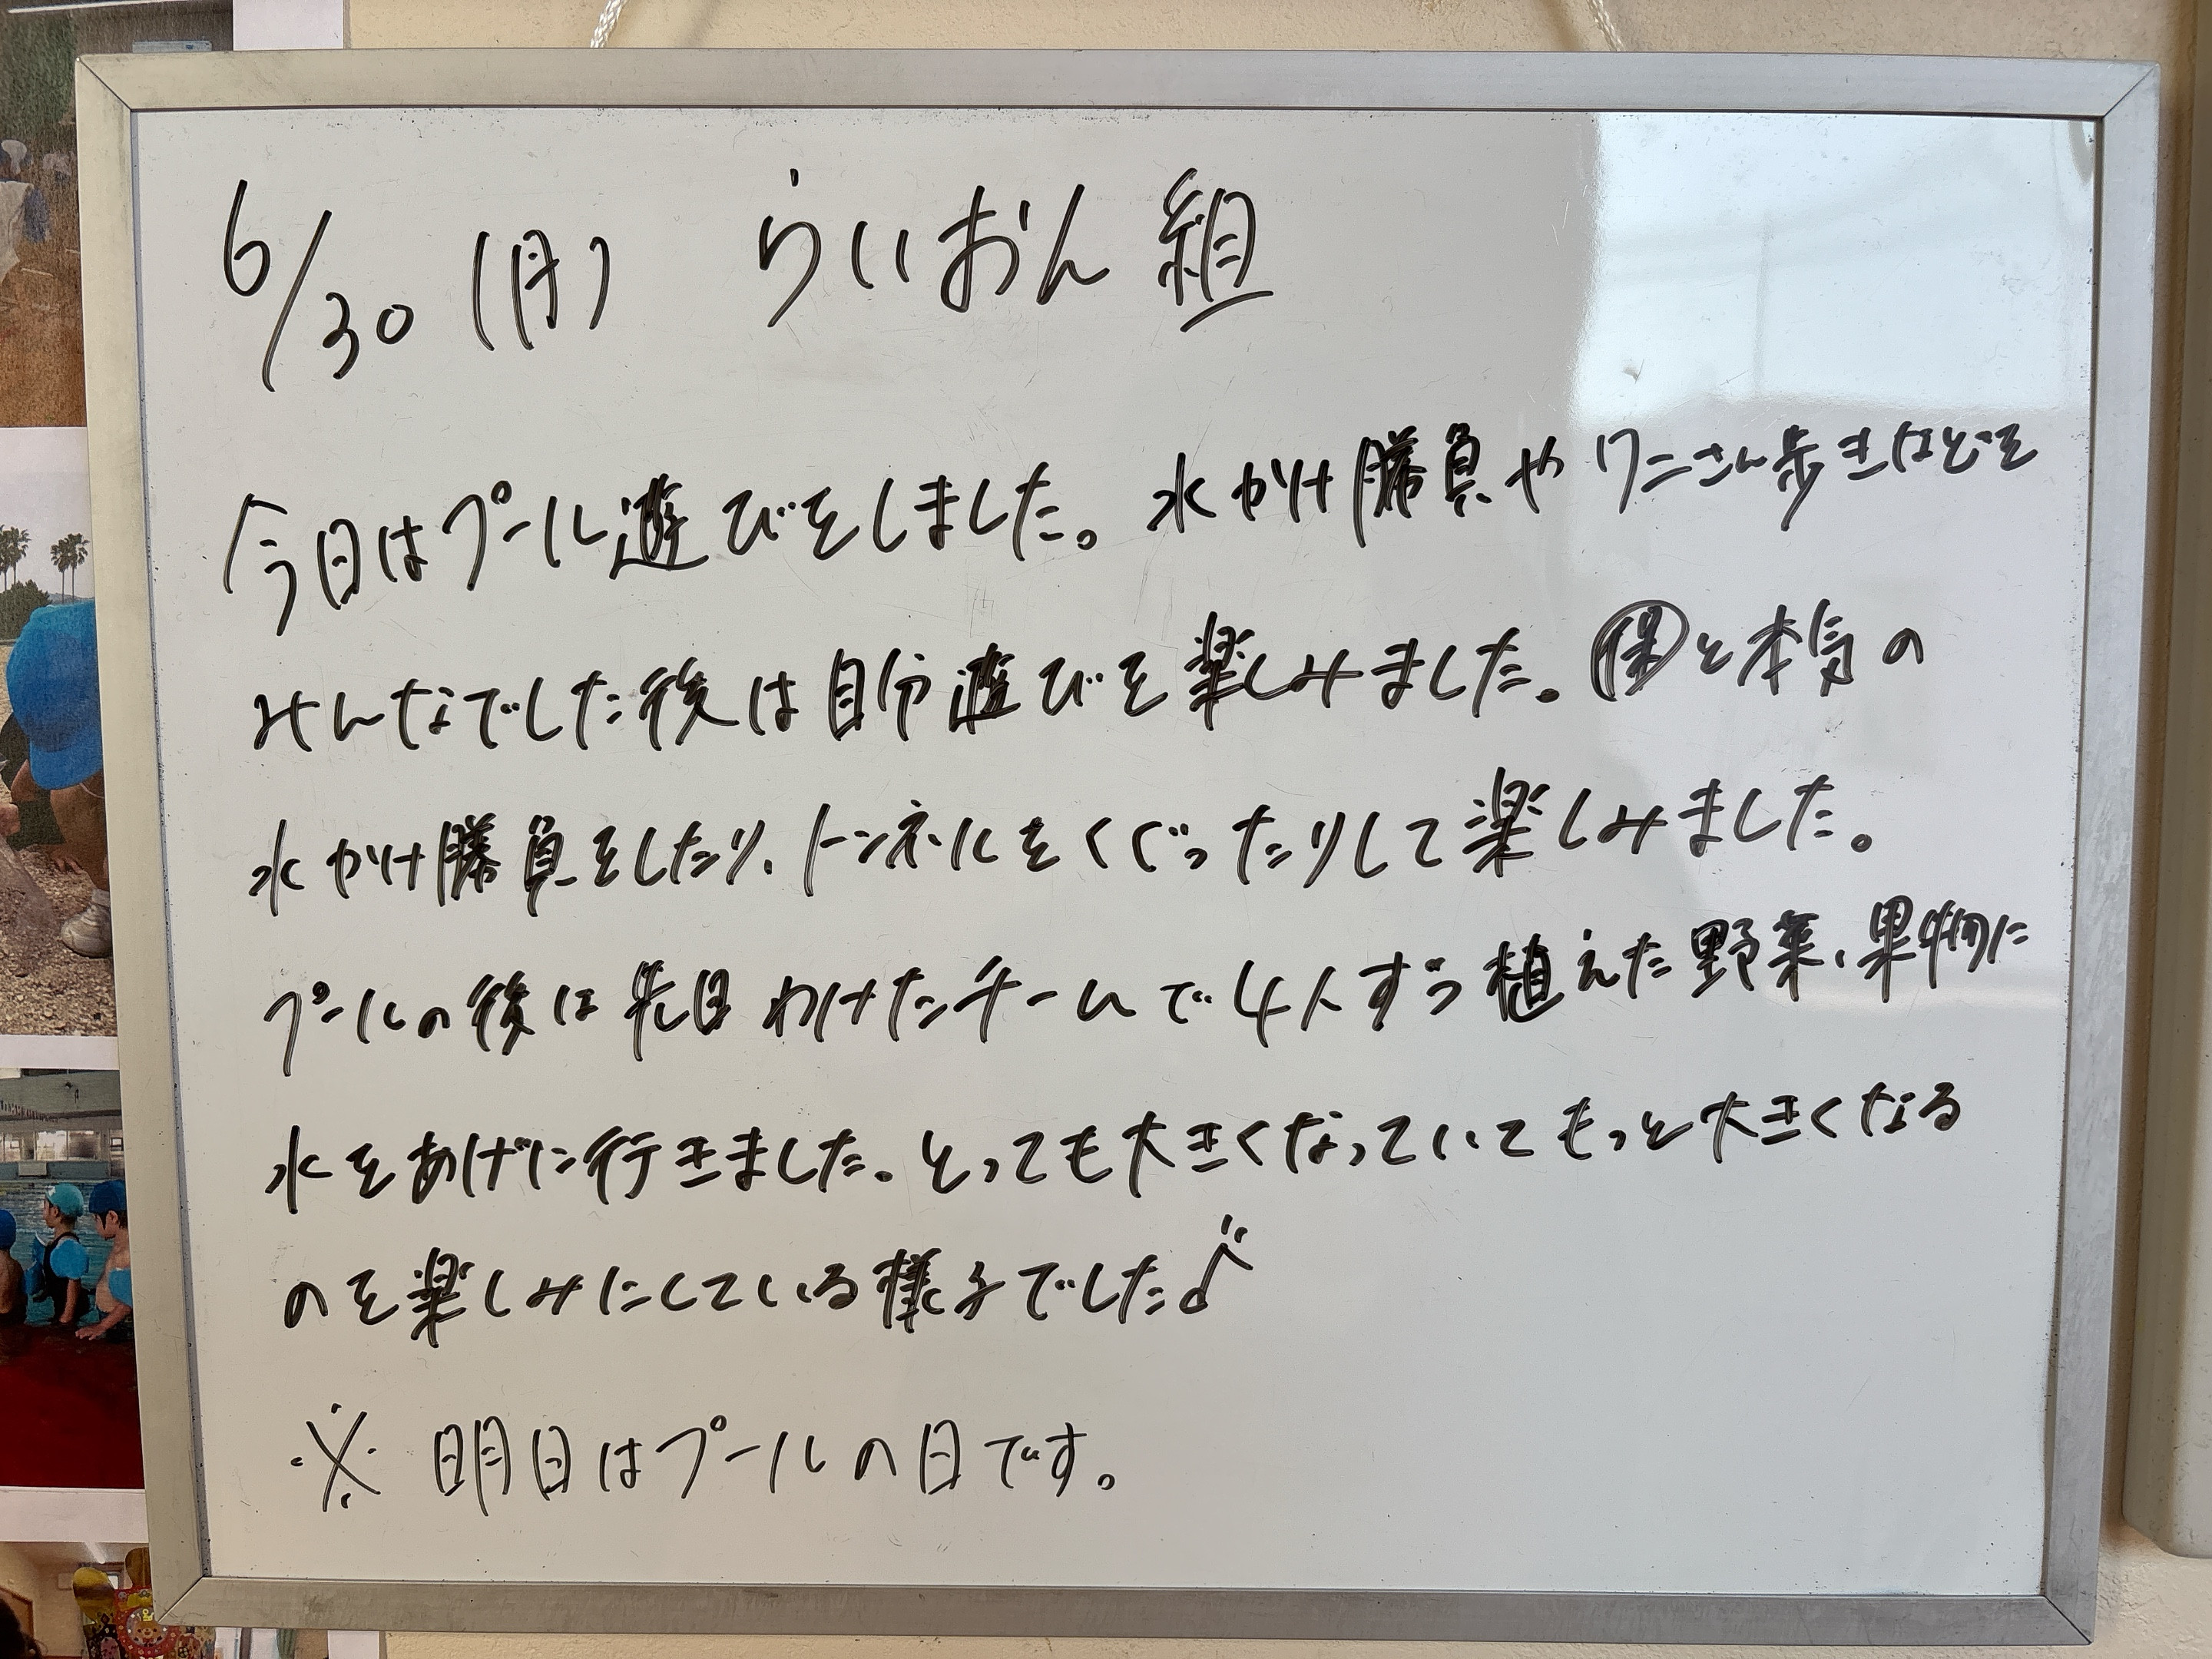 6/30(月) らいおん組
今日はプール遊びをしました。水かけ勝負やワニさん歩きなどを
みんなでした後は自分遊びを楽しみました。㊝と本気の
水かけ勝負をしたり、トンネルをくぐったりして楽しみました。
プールの後は先日わけたチームで4人ずつ植えた野菜、果物に
水をあげに行きました。とっても大きくなっていてもっと大きくなる
のを楽しみにしている様子でした♪
※ 明日はプールの日です。